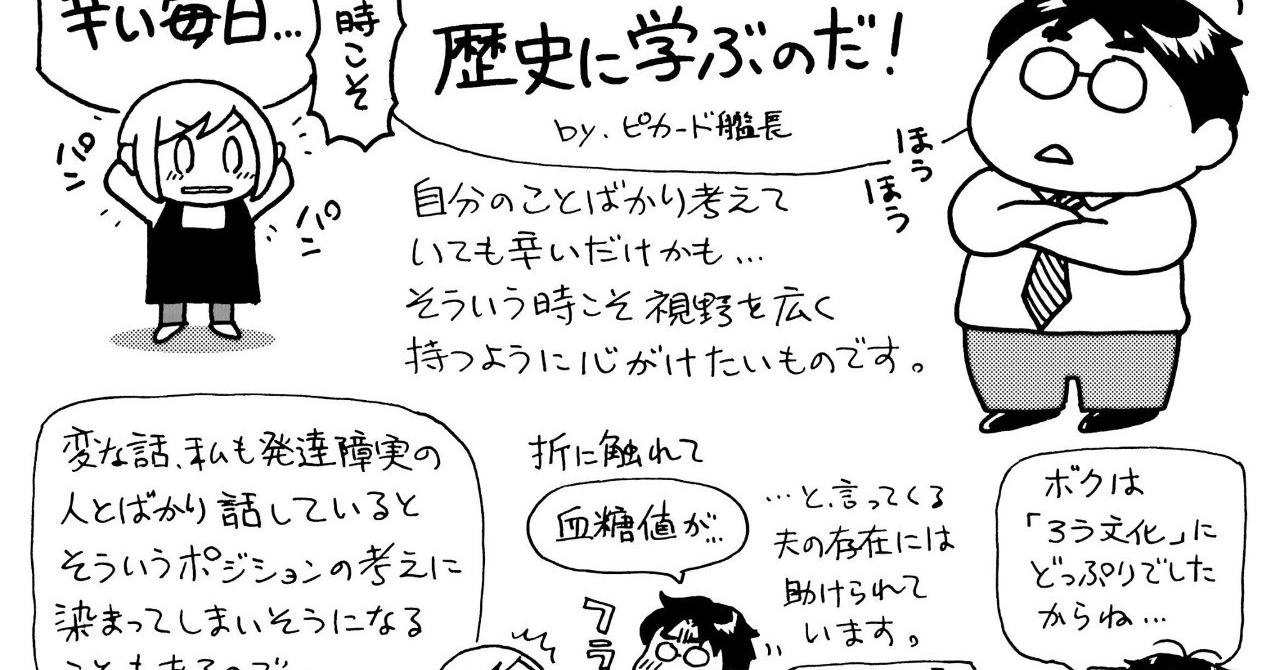 辛い毎日…
時こそ
歴史に学ぶのだ!
by.ピカード艦長
パ
パ
ほう
ほう
自分のことばかり考えて
いても辛いだけかも…
そういう時こそ視野を広く
持つように心がけたいものです。
変な話、私も発達障実の
人とばかり話していると
そういうポジションの考えに
染まってしまいそうになる
こともあるので
折に触れて
血糖値が…
…と、言ってくる
夫の存在には
助けられて
います。
フラ
ボクは
「ろう文化」に
どっぷりでした
からね…